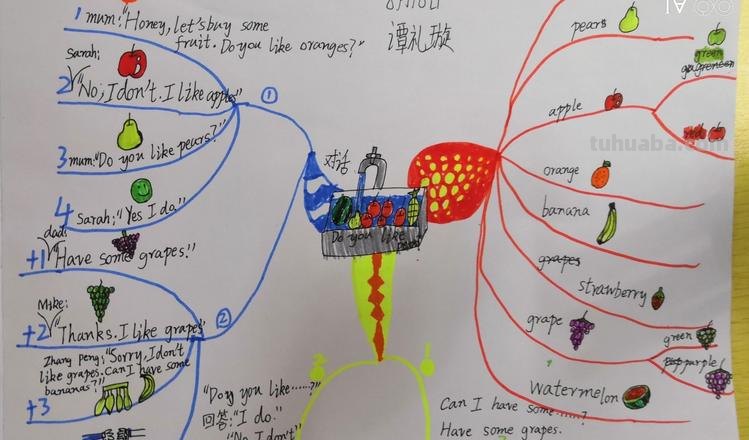 1 mum:"Honey, let's buy some
fruit. Do you like oranges?"
Sarah:
2 "No, I don't. I like apples"
3 mum:"Do you like pears?"
4 Sarah:"Yes I do."
dad:
+1 "Have some grapes."
Mike:
+2 "Thanks. I like grapes"
Zhang Peng: "Sorry, I don't
like grapes. Can I have some
bananas?"
+3
①
②
"Do you like……?"
回答:"I do."
"No I don't"
谭礼璇
对话
Do you like
pears
green
apple
red
tuhuaba.com
orange
banana
grapes
strawberry
grape
green
purple
watermelon
Can I have some……?
Have some grapes.